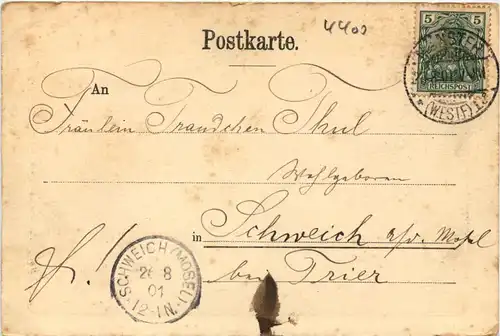 4400
Postkarte.
5
REICHSPOST
MÜNSTER
(WESTF)
An
Fräulein Traudchen Thul
Wohlgeboren
in Schweich a/d. Mosel
bei Trier
SCHWEICH (MOSEL)
26 8
01
12-1N.